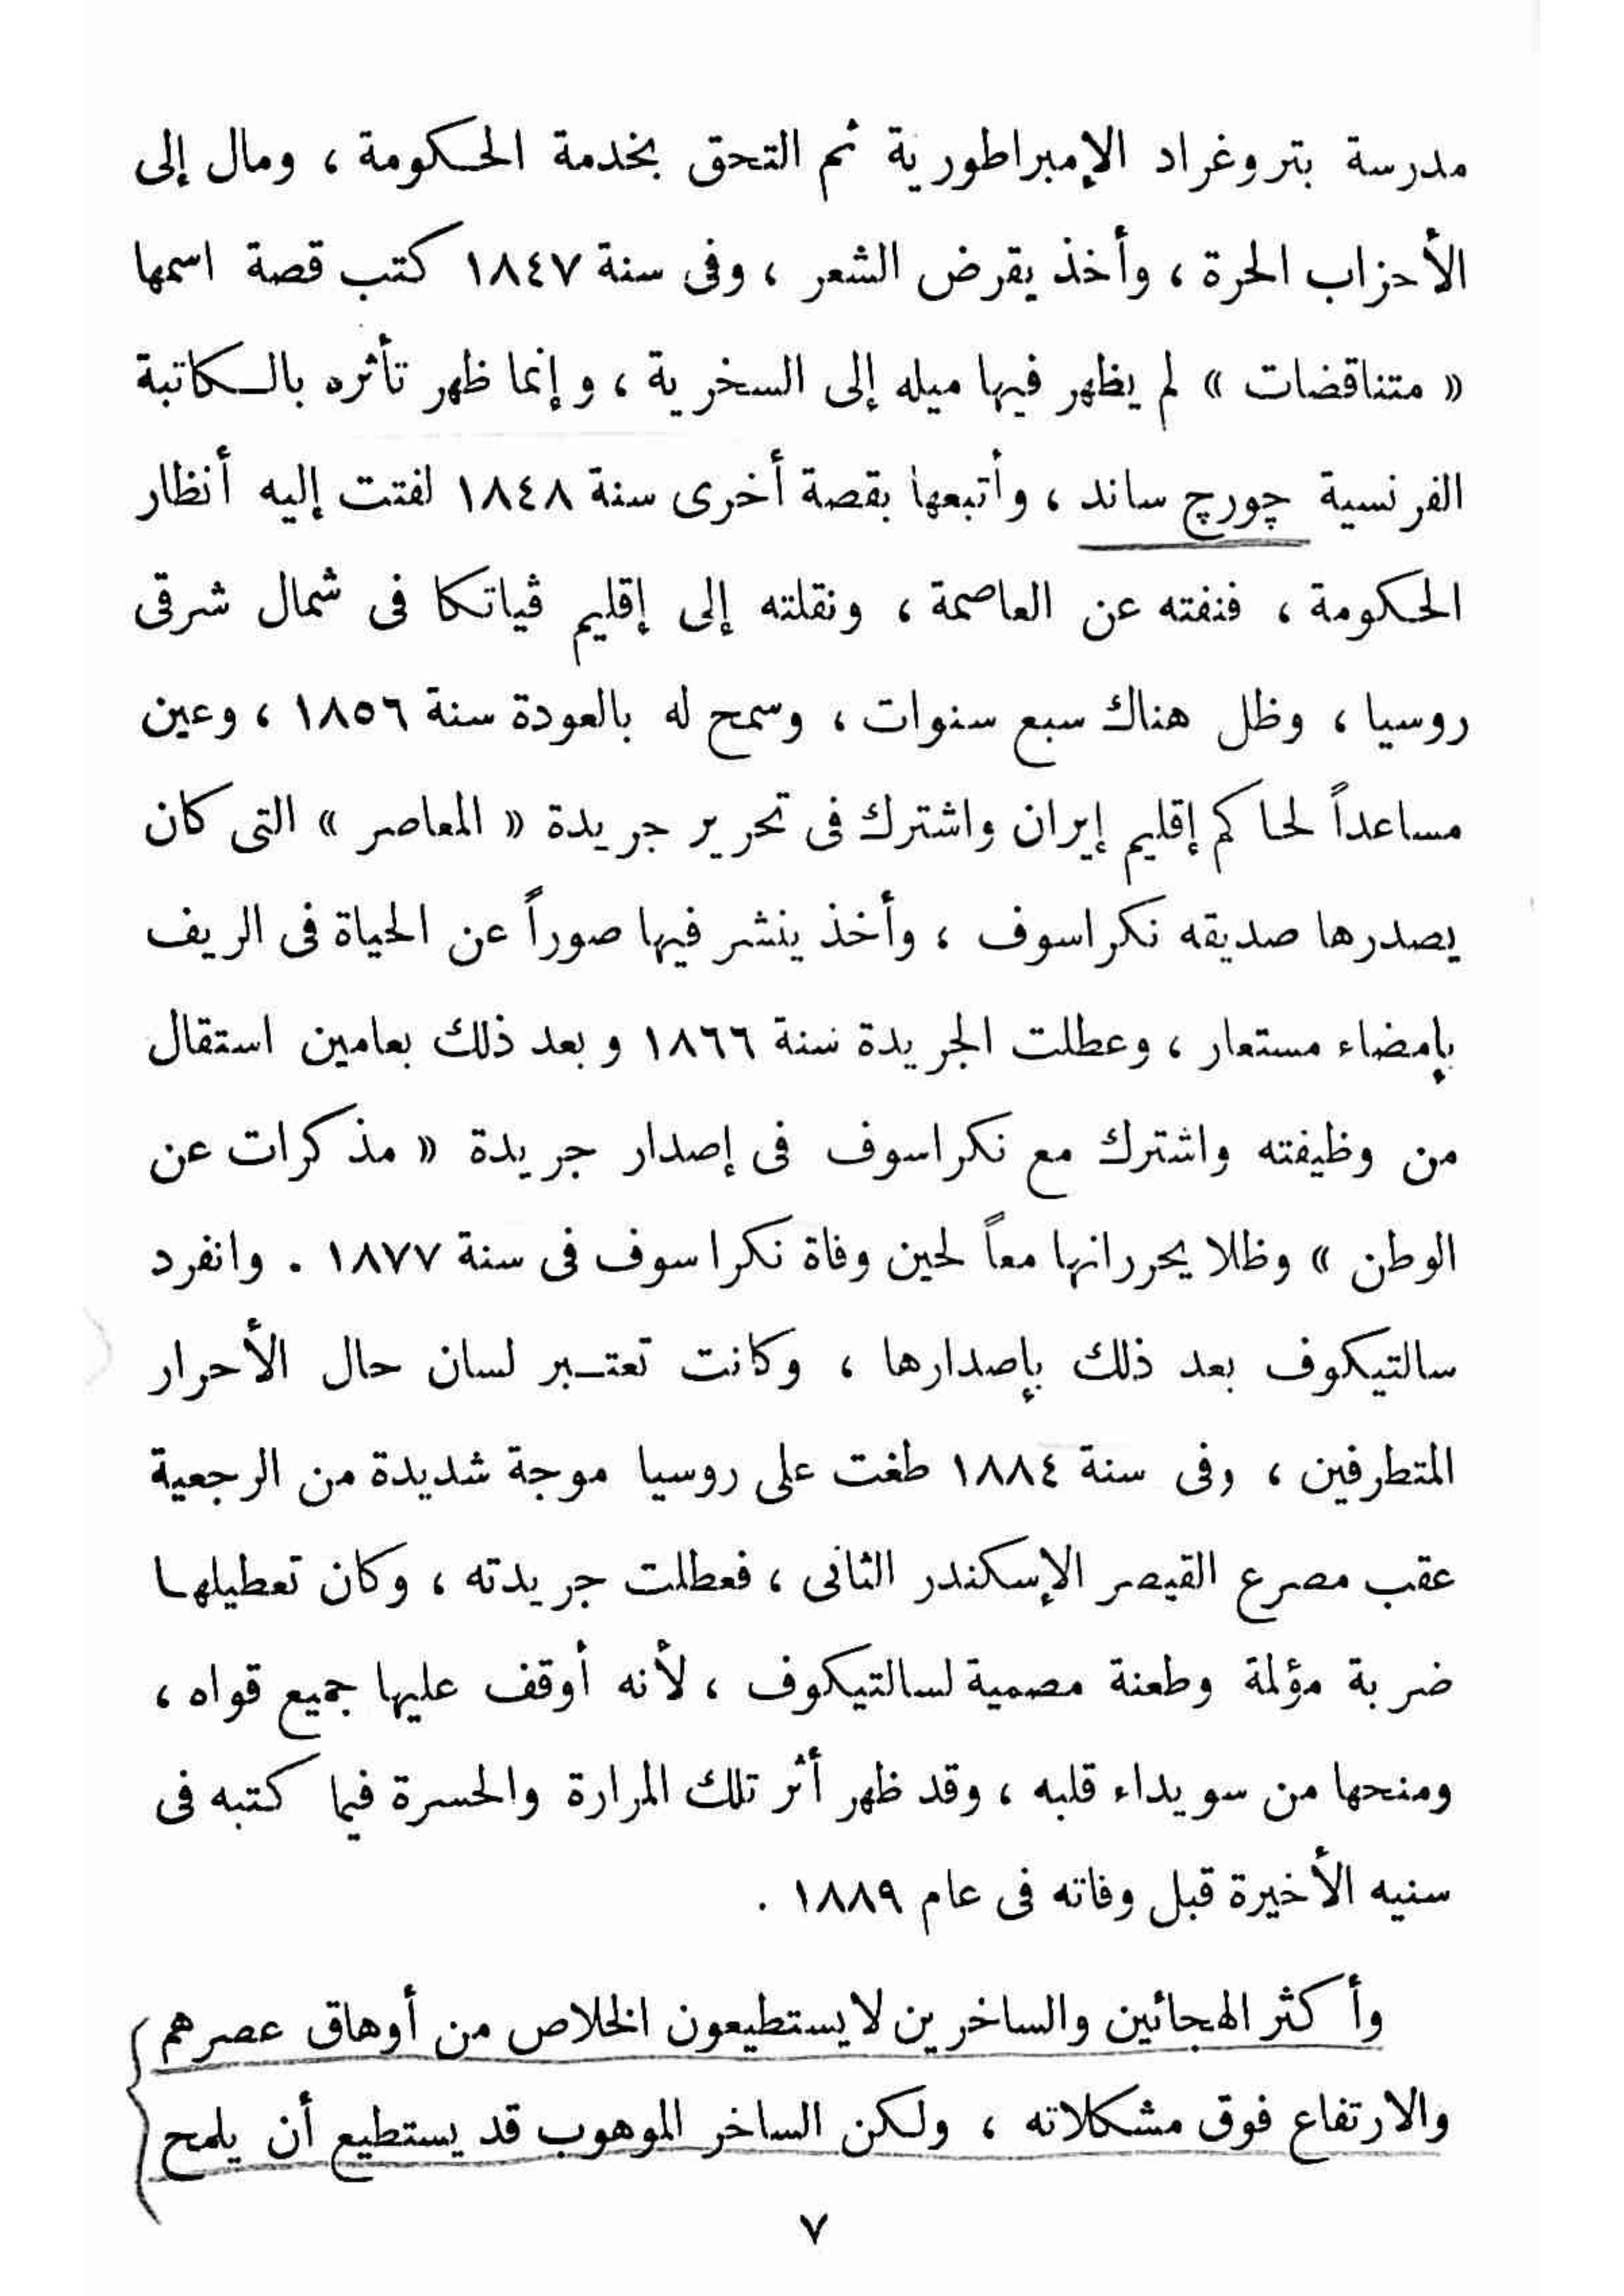 مدرسة بتروغراد الإمبراطورية ثم التحق بخدمة الحكومة ، ومال إلى
الأحزاب الحرة ، وأخذ يقرض الشعر ، وفى سنة ١٨٤٧ كتب قصة اسمها
« متناقضات » لم يظهر فيها ميله إلى السخرية ، وإنما ظهر تأثره بالكاتبة
الفرنسية چورچ ساند ، وأتبعها بقصة أخرى سنة ١٨٤٨ لفتت إليه أنظار
الحكومة ، فنفته عن العاصمة ، ونقلته إلى إقليم ڤياتكا فى شمال شرقى
روسيا ، وظل هناك سبع سنوات ، وسمح له بالعودة سنة ١٨٥٦ ، وعين
مساعداً لحاكم إقليم إيران واشترك فى تحرير جريدة « المعاصر » التى كان
يصدرها صديقه نكراسوف ، وأخذ ينشر فيها صوراً عن الحياة فى الريف
بإمضاء مستعار ، وعطلت الجريدة سنة ١٨٦٦ وبعد ذلك بعامين استقال
من وظيفته واشترك مع نكراسوف فى إصدار جريدة « مذكرات عن
الوطن » وظلا يحررانها معاً لحين وفاة نكراسوف فى سنة ١٨٧٧ . وانفرد
سالتيكوف بعد ذلك بإصدارها ، وكانت تعتبر لسان حال الأحرار
المتطرفين ، وفى سنة ١٨٨٤ طغت على روسيا موجة شديدة من الرجعية
عقب مصرع القيصر الإسكندر الثانى ، فعطلت جريدته ، وكان تعطيلها
ضربة مؤلمة وطعنة مصمية لسالتيكوف ، لأنه أوقف عليها جميع قواه ،
ومنحها من سويداء قلبه ، وقد ظهر أثر تلك المرارة والحسرة فيما كتبه فى
سنيه الأخيرة قبل وفاته فى عام ١٨٨٩ .
وأكثر الهجائين والساخرين لا يستطيعون الخلاص من أوهاق عصرهم
والارتفاع فوق مشكلاته ، ولكن الساخر الموهوب قد يستطيع أن يلمح
٧